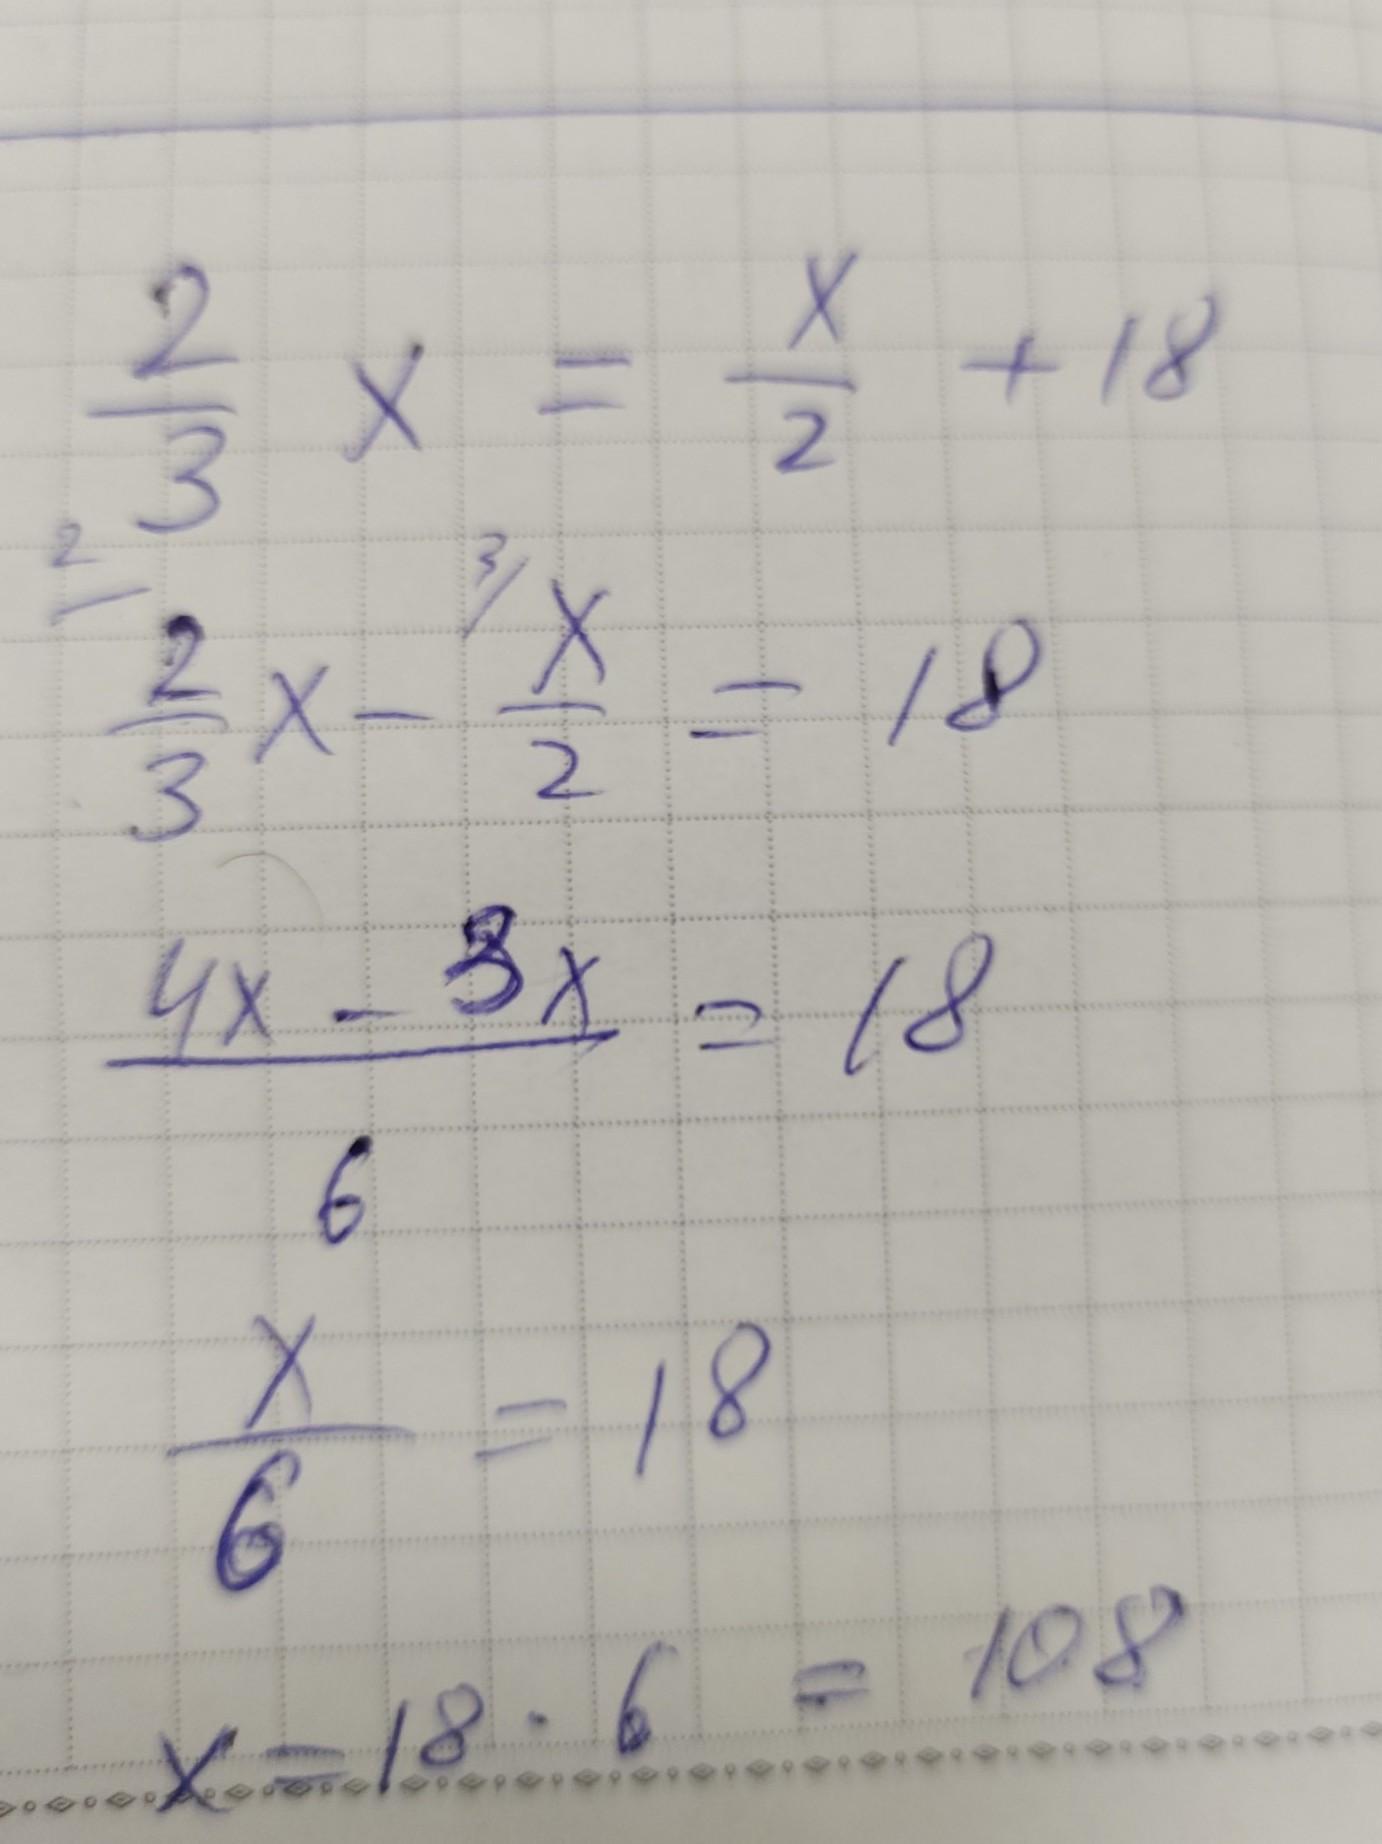 2/3 x = x/2 + 18
2/ 2/3 x - 3/ x/2 = 18
(4x - 3x)/6 = 18
x/6 = 18
x = 18 · 6 = 108